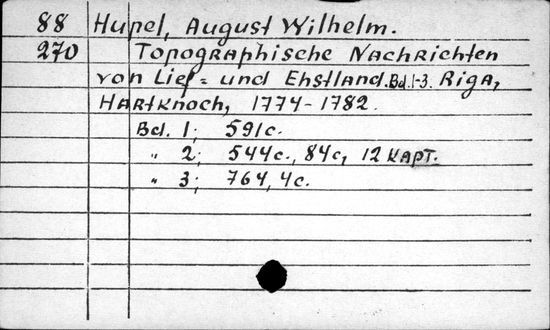 88 Hupel, August Wilhelm.
270 Topographische Nachrichten
von Lief- und Ehstland. Bd. 1-3. Riga,
Hartknoch, 1774-1782.
Bd. 1; 591 с.
" 2; 544 с., 84 с, 12 карт.
" 3; 764, 4 с.